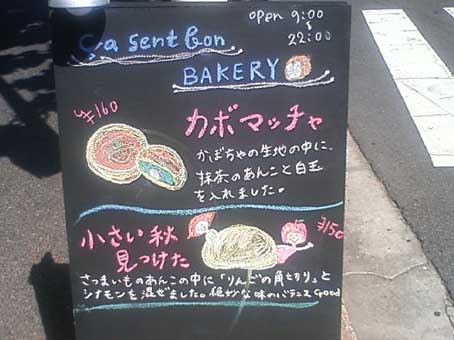 Ça sent bon
BAKERY
open 9:00
〜
22:00
¥160
カボマッチャ
かぼちゃの生地の中に、
抹茶のあんこと白玉
を入れました。
小さい秋
見つけた
¥150
さつまいものあんこの中に「りんごの角切り」と
シナモンを混ぜました。絶妙な味のバランスGood